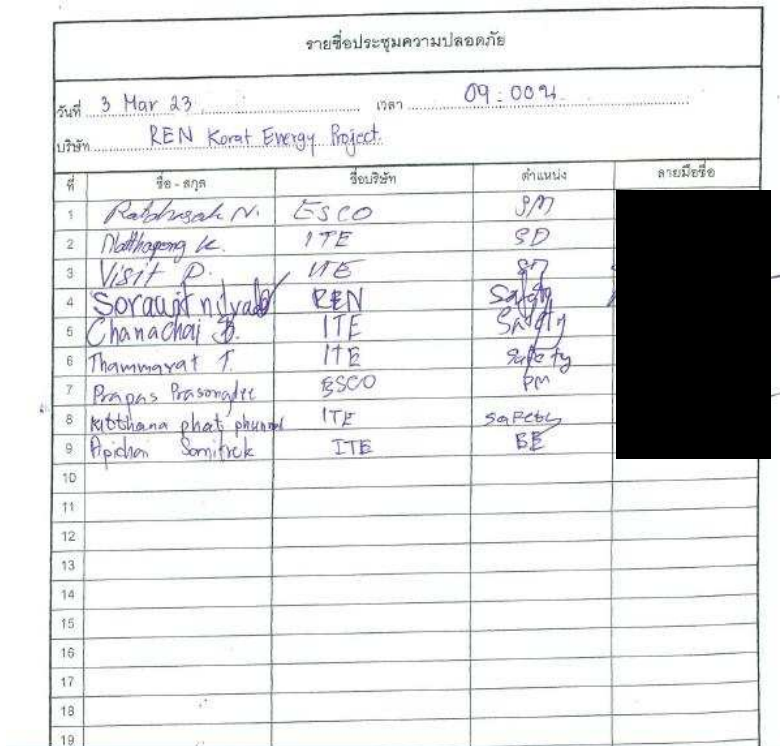 รายชื่อประชุมความปลอดภัย
วันที่ 3 Mar 23 เวลา 09:00 น.
บริษัท REN Korat Energy Project.
ที่ ชื่อ - สกุล ชื่อบริษัท ตำแหน่ง ลายมือชื่อ
1 N. ESCO
2 Natthapong K. ITE SD
3 Visit P. ITE
4 Sorawit REN Safety
5 Chanachai B. ITE Safety
6 Thammarat T. ITE Safety
7 Prapas ESCO PM
8 Kitthana phat ITE Safety
9 Apichai ITE BE
10
11
12
13
14
15
16
17
18
19